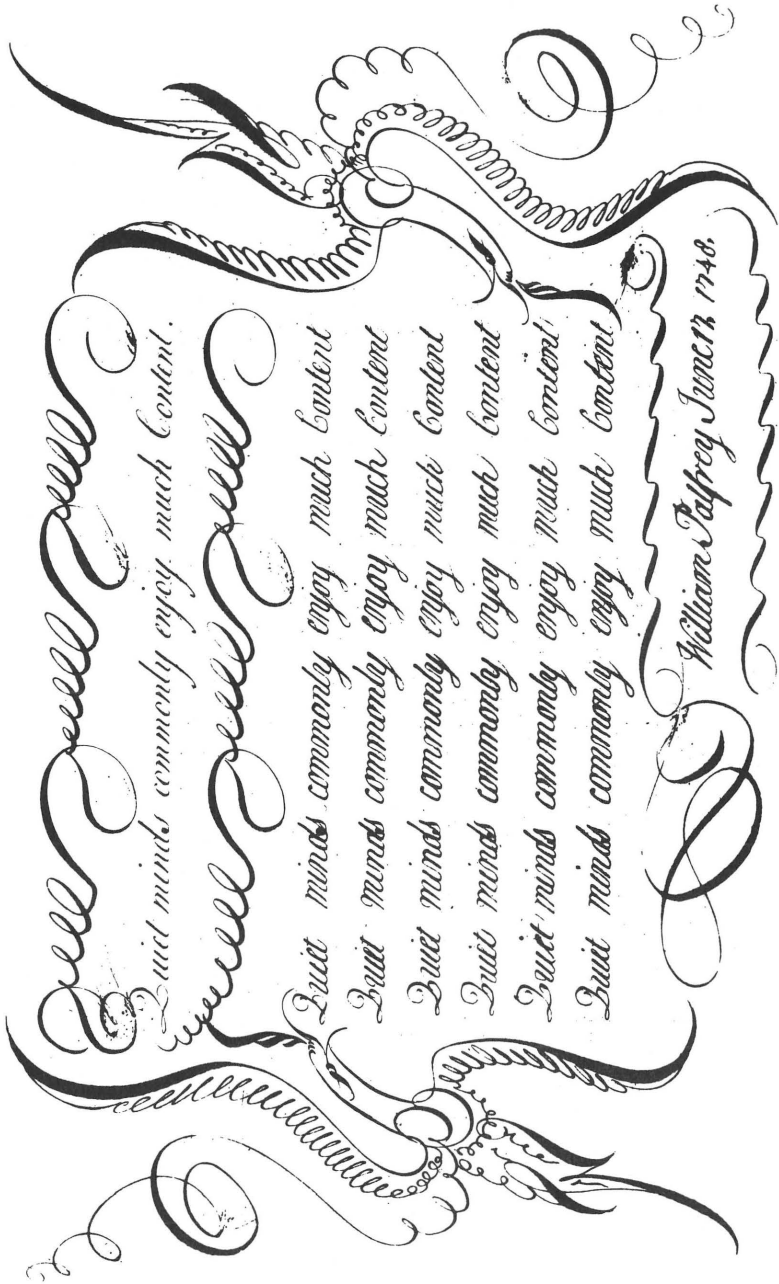 Quiet minds commonly enjoy much Content.
Quiet minds commonly enjoy much Content
Quiet minds commonly enjoy much Content
Quiet minds commonly enjoy much Content
Quiet minds commonly enjoy much Content
Quiet minds commonly enjoy much Content
Quiet minds commonly enjoy much Content
William Palfrey June 12, 1748.